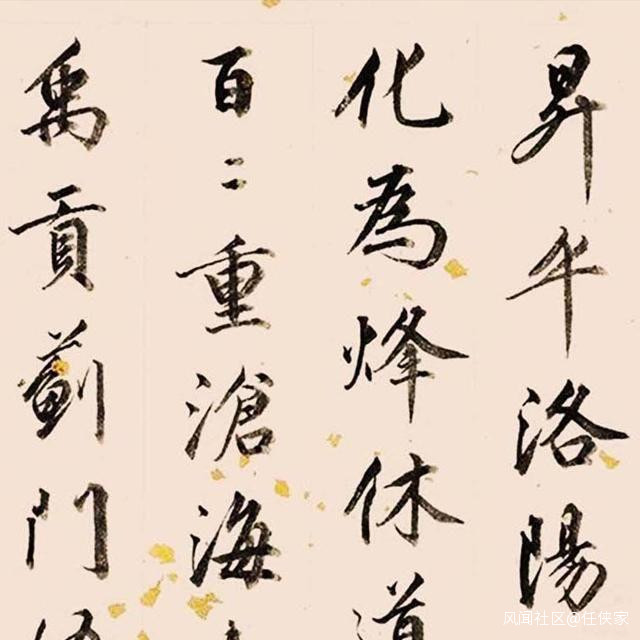 昇平洛陽
化為烽休道
百二重滄海
禹貢薊門
风闻社区@任侠家